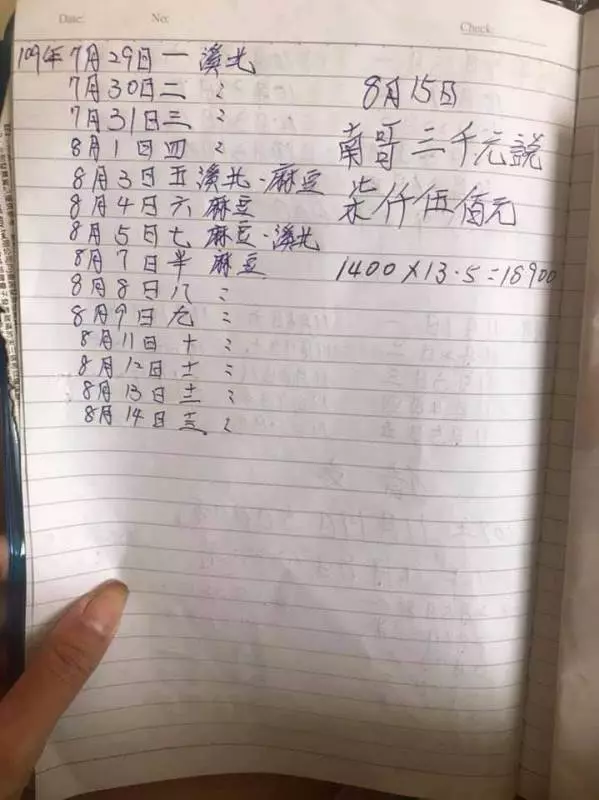 Date: No: Check:
109年7月29日一 溪北
7月30日二 〃
7月31日三 〃
8月1日四 〃
8月3日五 溪北·麻豆
8月4日六 麻豆
8月5日七 麻豆·溪北
8月7日半 麻豆
8月8日八 〃
8月9日九 〃
8月11日十 〃
8月12日十一 〃
8月13日十二 〃
8月14日十三 〃
8月15日
南哥二千元說
柒仟伍佰元
1400×13.5=18900